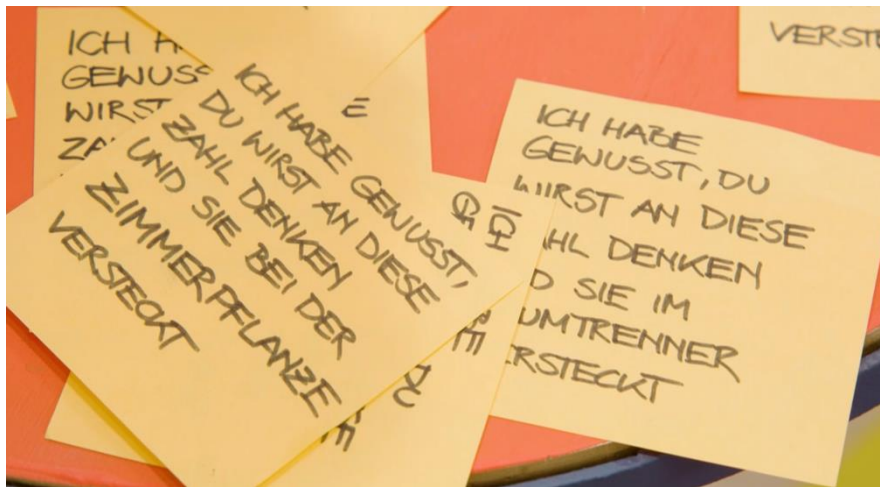 ICH
GEWUSS
WIRST
ICH HABE GEWUSST,
DU WIRST AN DIESE
ZAHL DENKEN
UND SIE BEI DER
ZIMMERPFLANZE
VERSTECKT
ICH HABE
GEWUSST, DU
WIRST AN DIESE
AHL DENKEN
D SIE IM
UMTRENNER
ERSTECKT
VERSTE